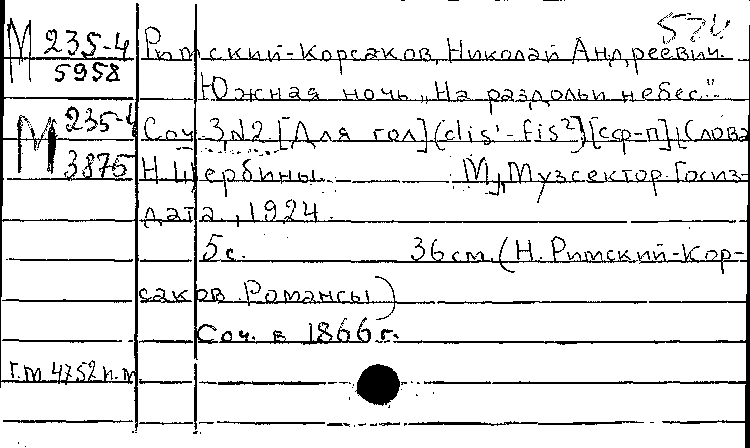 М 235-4 Римский-Корсаков, Николай Андреевич.
5958
Южная ночь „На раздольи небес".
М 235-4 Соч 3, №2. [Для гол] (dis¹-fis²) [с ф-п]. Слова
3875 Н Щербины. М., Музсектор Госиз-
дата, 1924.
5 с. 36 см. (Н. Римский-Кор-
саков. Романсы)
Соч. в 1866 г.
г.м. 4752 н.м